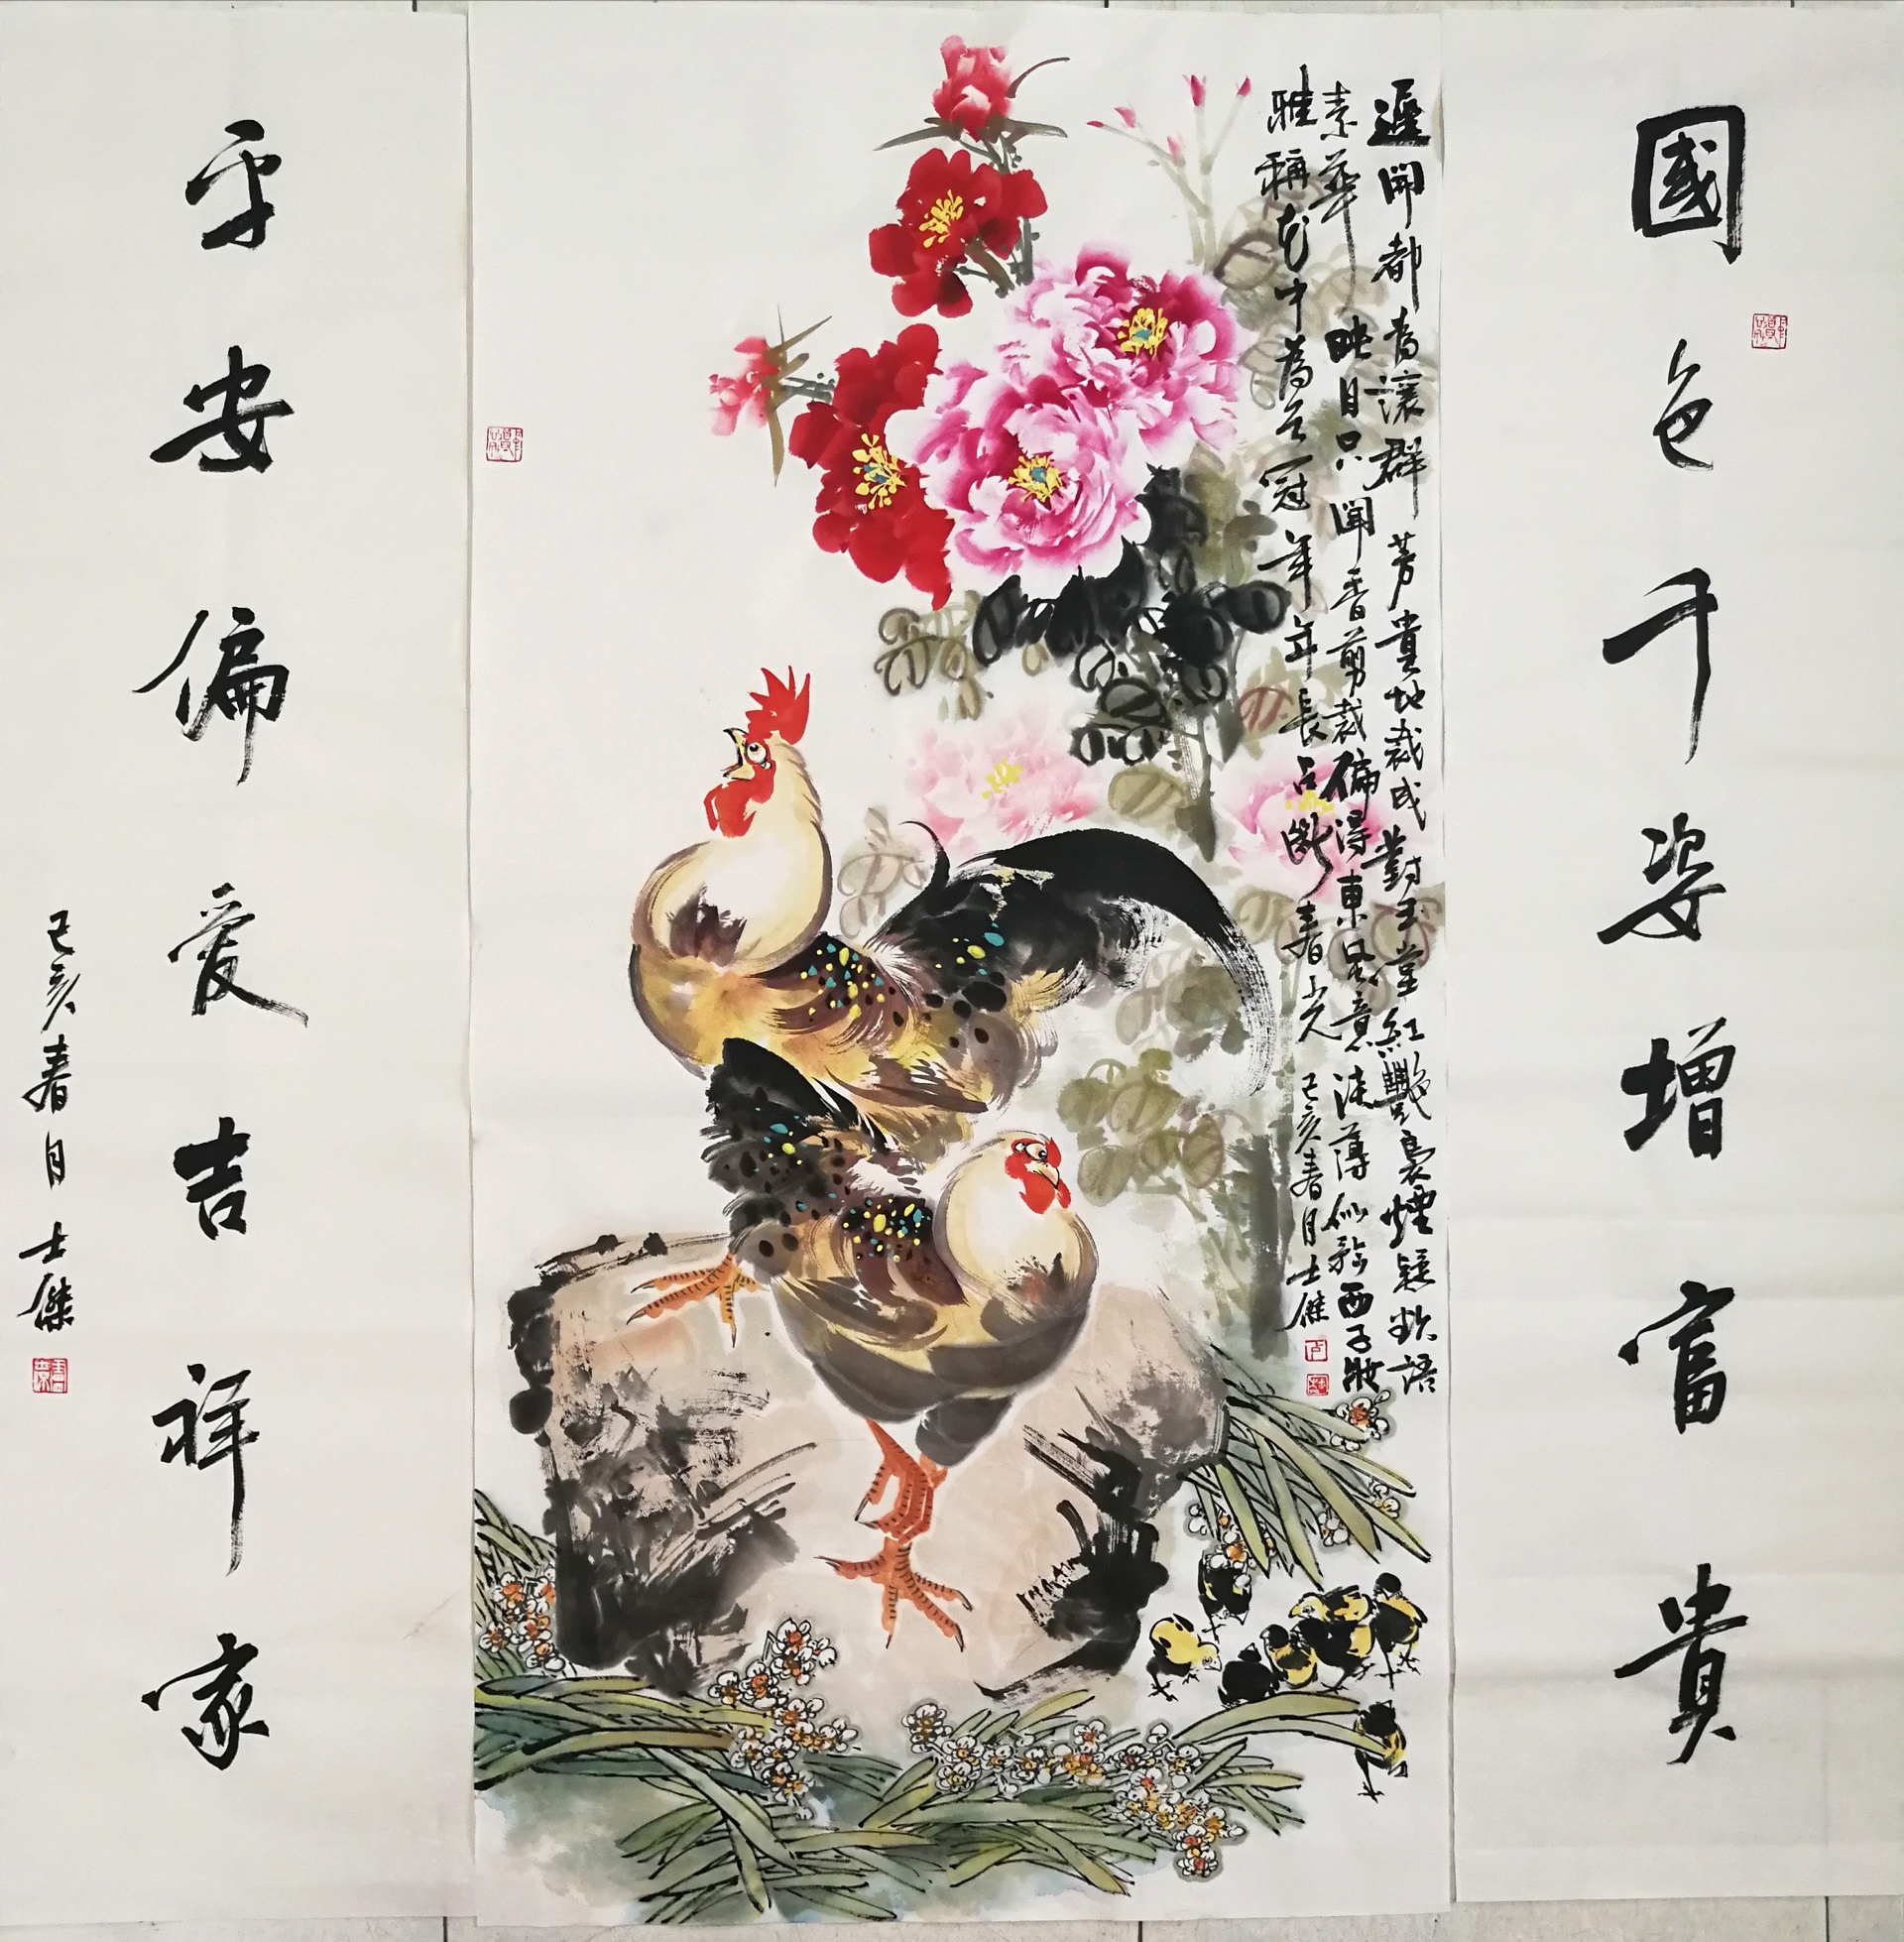 國色千姿增富貴
遲開都為讓群芳貴地栽成對玉堂紅艷裊煙疑欲語
素華映目只聞香剪裁偏得東風意淡薄似矜西子妝
雅稱花中為首冠年年長占斷春光 己亥春月士傑
平安偏愛吉祥家
己亥春月士傑